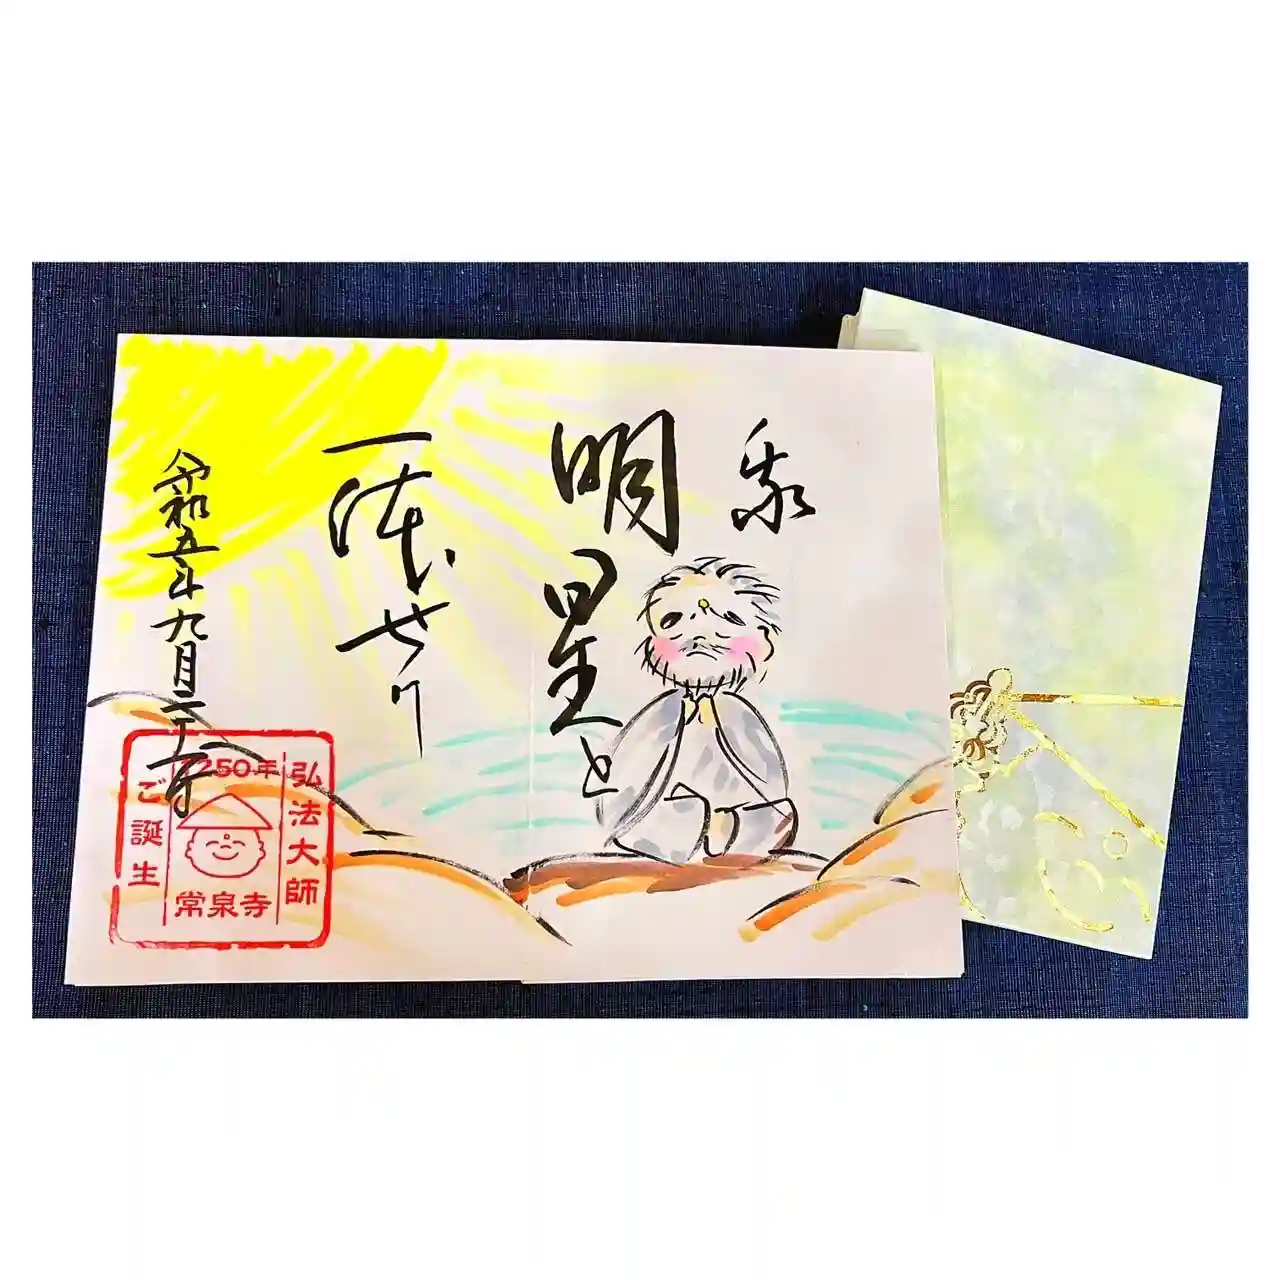 我
明星と
一体せり
令和五年九月二十一日
弘法大師
1250年
常泉寺
ご誕生